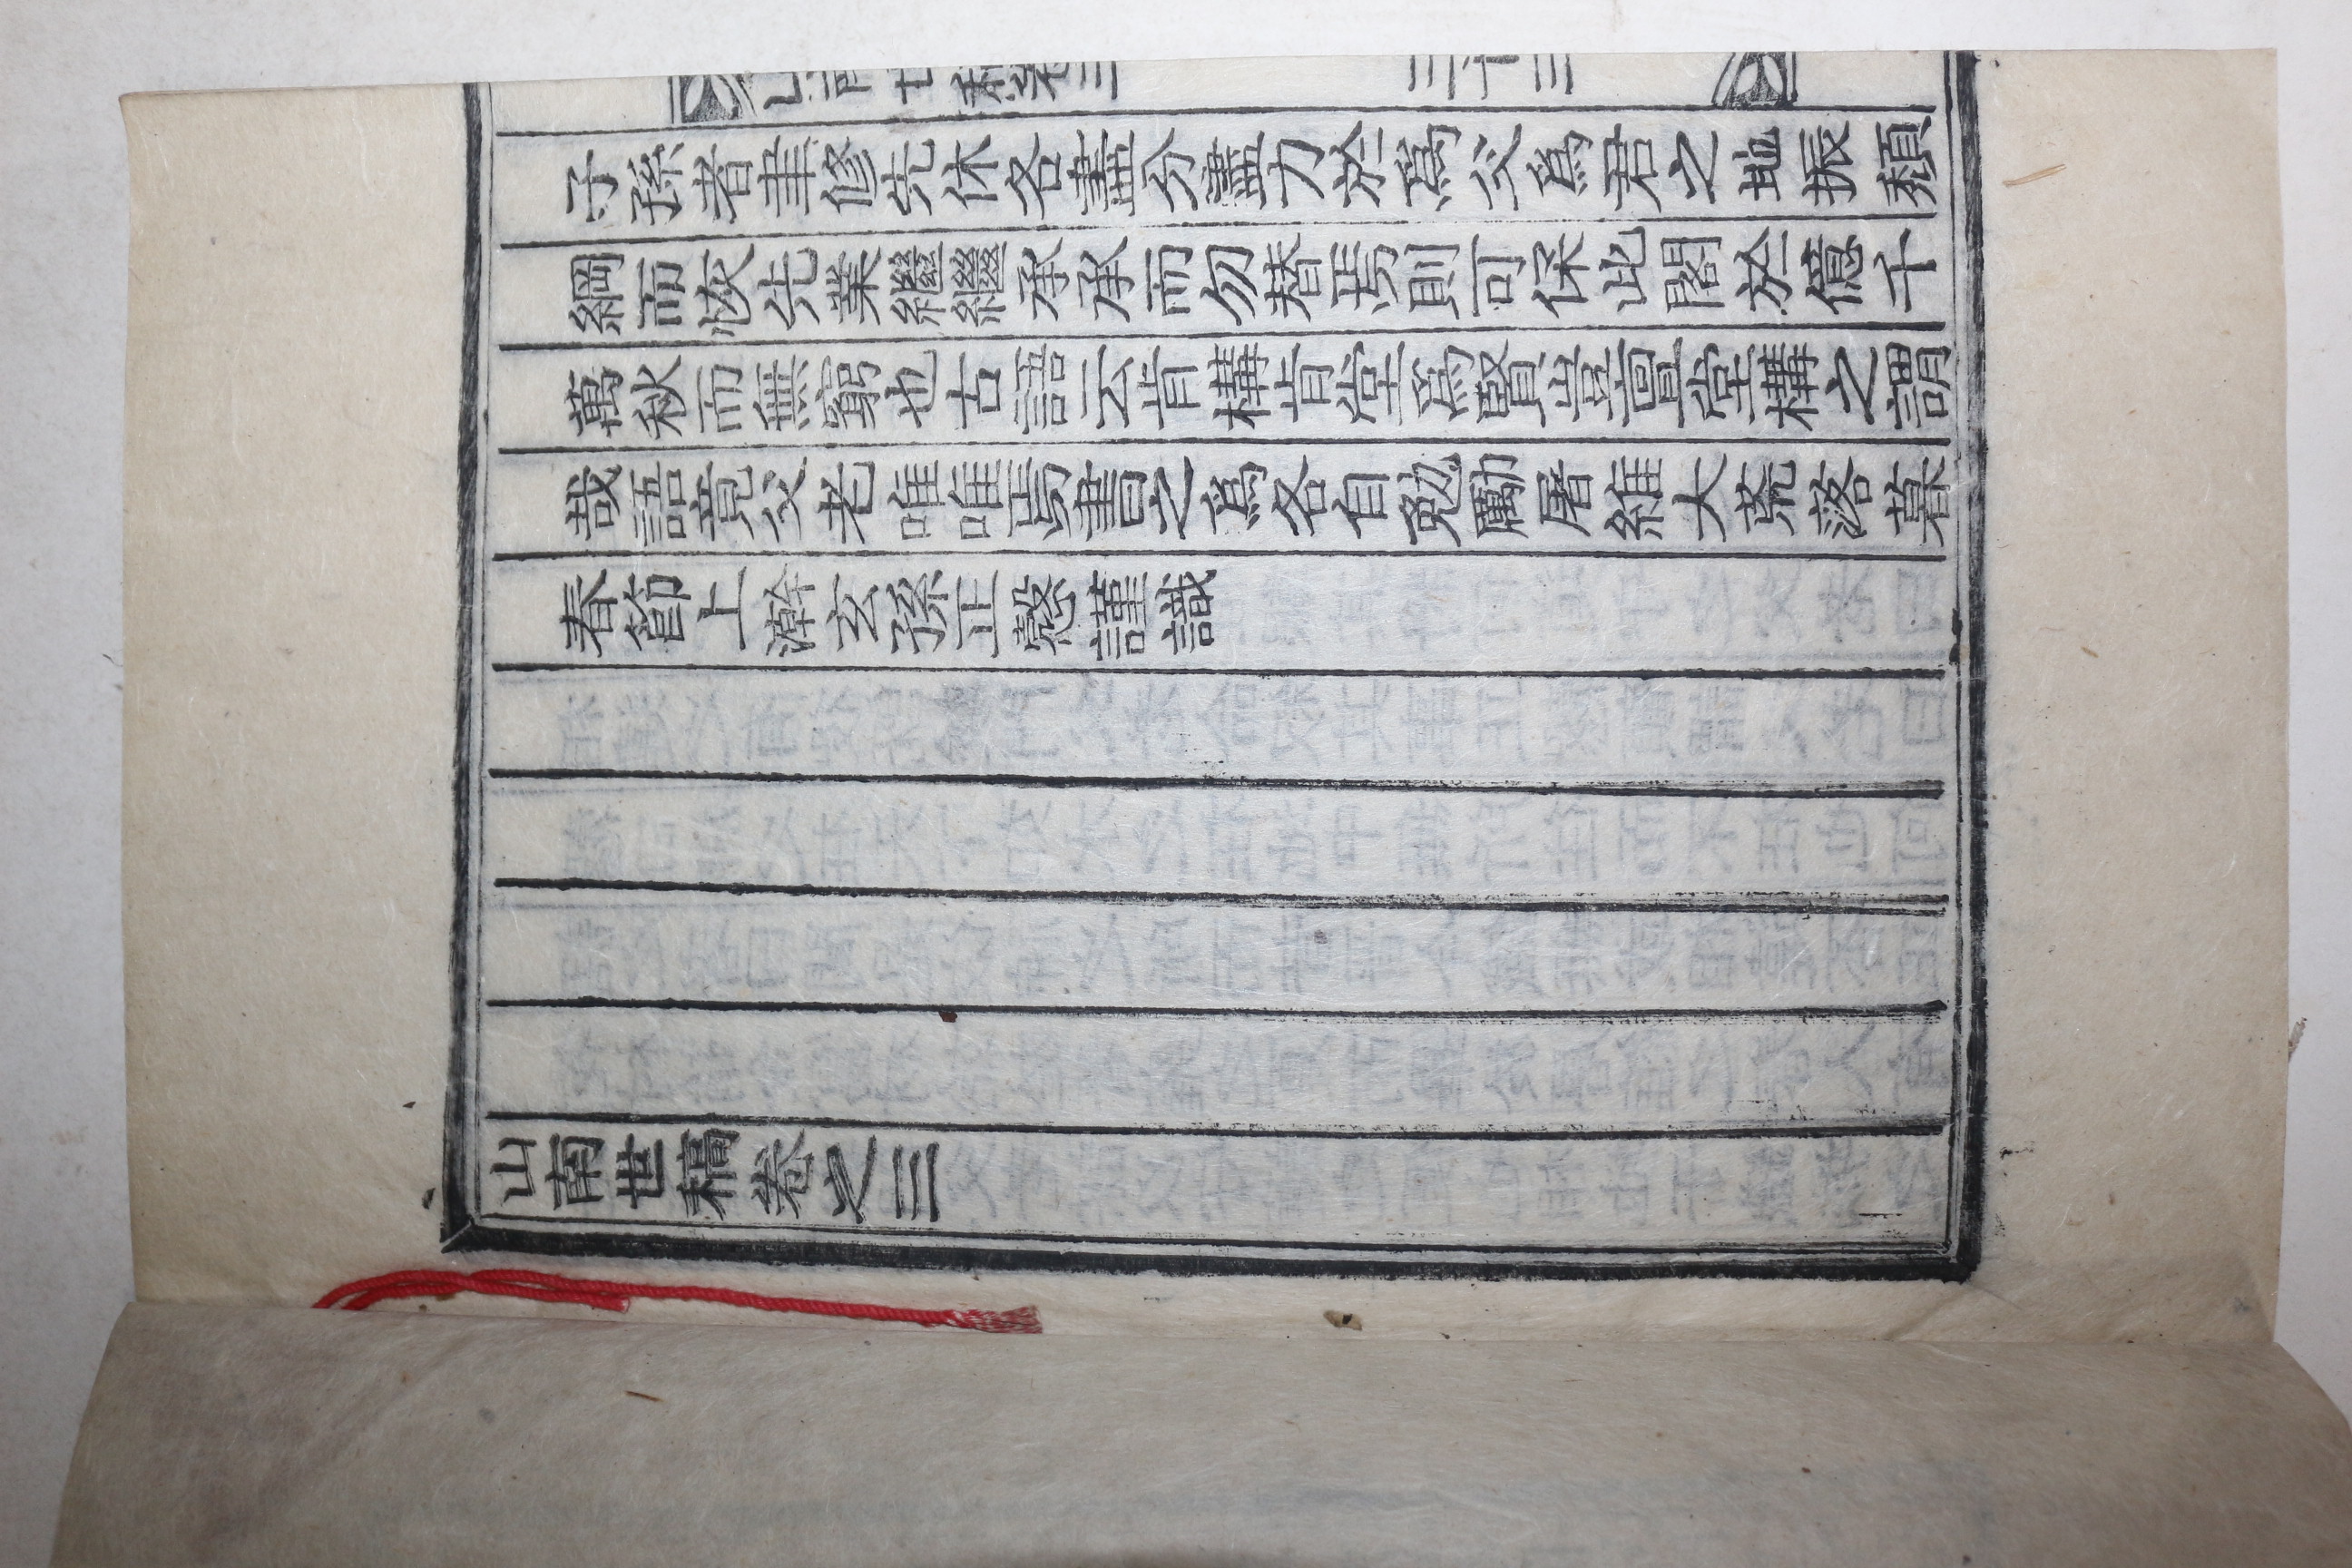 山南世稿卷三　三十三
子孫者聿修先休各盡分盡力於爲父爲君之地振頹
綱而恢先業繼繼承承而勿替焉則可保此閣於億千
萬秋而無窮也古語云肯構肯堂爲賢豈亶堂構之謂
哉語竟父老唯唯焉書之爲各自勉勵屠維大荒落暮
春節上澣玄孫正慤謹識
山南世稿卷之三